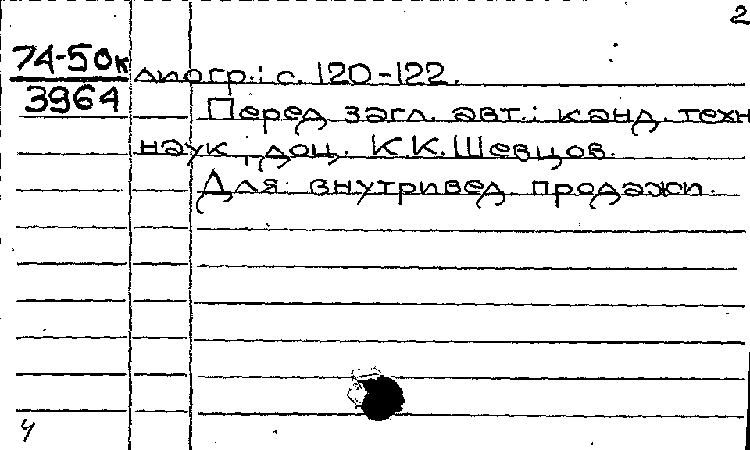 2
74-50к
3964
лиогр.: с. 120-122.
Перед загл. авт.: канд. техн
наук, доц. К.К.Шевцов.
Для внутривед. продажи.
ч